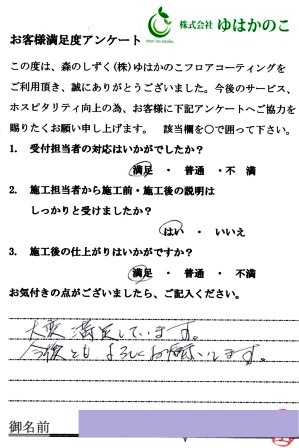 株式会社 ゆはかのこ
お客様満足度アンケート
この度は、森のしずく(株)ゆはかのこフロアコーティングを
ご利用頂き、誠にありがとうございました。今後のサービス、
ホスピタリティ向上の為、お客様に下記アンケートへご協力を
賜りたくお願い申し上げます。 該当欄を○で囲って下さい。
1. 受付担当者の対応はいかがでしたか?
満足 ・ 普通 ・不 満
2. 施工担当者から施工前・施工後の説明は
しっかりと受けましたか?
はい ・ いいえ
3. 施工後の仕上がりはいかがですか?
満足 ・ 普通 ・ 不満
お気付きの点がございましたら、ご記入ください。
大変満足しています。
今後ともよろしくお願いします。
御名前